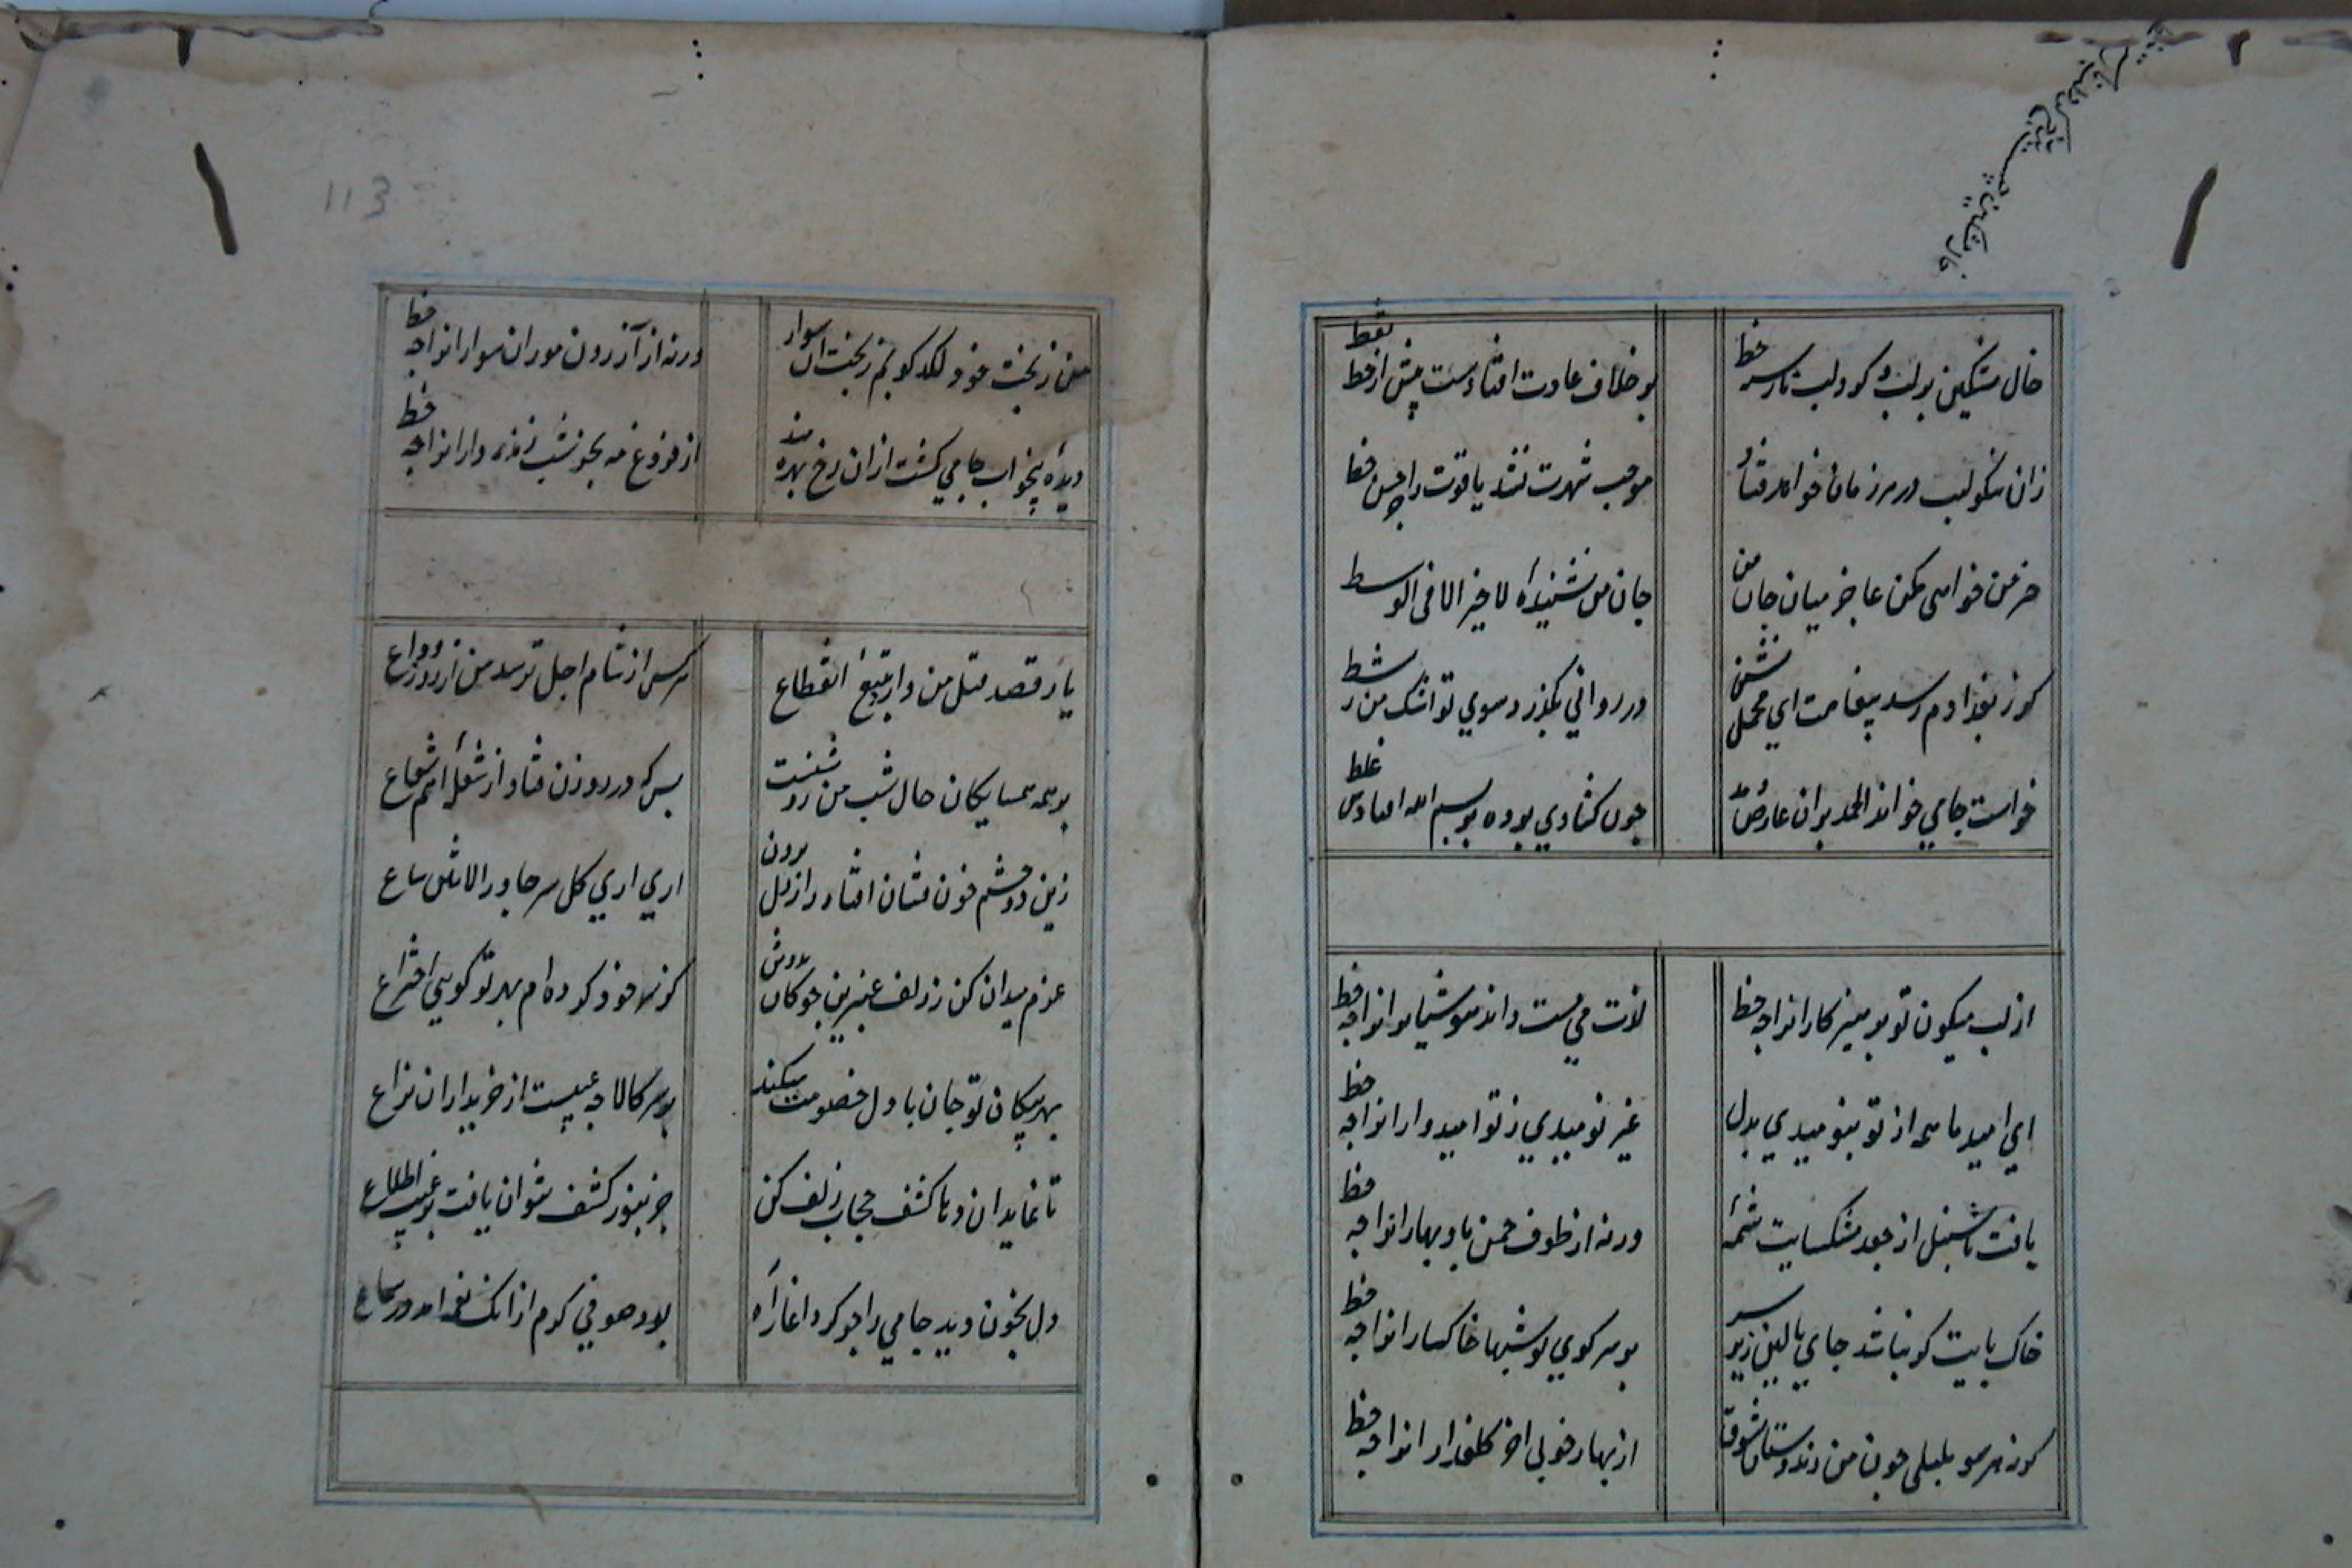 خال مشکین بر لب و کرد لب تا سر خط
بر خلاف عادت افتادست پیش از خط نقط
زان نکو لب در مرز مان خواهد فتاد
موجب شهرت نشد یاقوت را جز حسن خط
حز من خواهی مکن عاجز میان جان من
جان من نشنیده لا خیر الا فی الوسط
کر ز بغدادم رسد پیغامت ای محمل نشین
در روانی بکذرد سوی تو اشک من ز شط
خواست جامی خواند الحمد بران عارض
چون کشادی بوده بر بسم الله افتادس غلط
از لب میکون تو پرهیزکارانرا چه حظ
لذت می مست داند هوشیارانرا چه حظ
ای امید ما همه از تو بنومیدی بدل
غیر نومیدی ز تو امیدوارانرا چه حظ
یافت تا سنبل از جعد مشکسایت شمه
ورنه از طوف چمن باد بهارانرا چه حظ
خاک پایت کر نباشد جای بالین زیر سر
بر سر کوی تو شبها خاکسارانرا چه حظ
کر نه هر سو بلبلی چون من زند دستان شوق
از بهار خوبی اخر کلعذارانرا چه حظ
من ز بخت خود لکد کوبم ز بخت ان سوار
ورنه از آزردن موران سوارانرا چه حظ
دیده بیخواب جامی کشت ازان رخ بهره مند
از فروغ مه بجز شب زنده دارانرا چه حظ
یار قصد قتل من دارد بتیغ انقطاع
هر کس از شام اجل ترسد من از روز وداع
بر همه همسایکان حال شب من روشنست
بس که در روزن فتاد از شعله اهم شعاع
زین دو چشم خون فشان افتاد راز دل برون
اری اری کل سر جاوز الاثنین شاع
عزم میدان کن ز زلف عنبرین چوکان بدوش
کز سر خود کرده ام بهر تو کویی اختراع
بهر پیکان تو جان با دل خصومت میکند
بر سر کالا چه عیبست از خریداران نزاع
تا نماید ان دهان کشف حجاب زلف کن
جز بنور کشف نتوان یافت بر غیب اطلاع
دل بخون دید جامی را چو کرد اغاز اه
بود صوفی کرم از انک نغمه امد در سماع
113